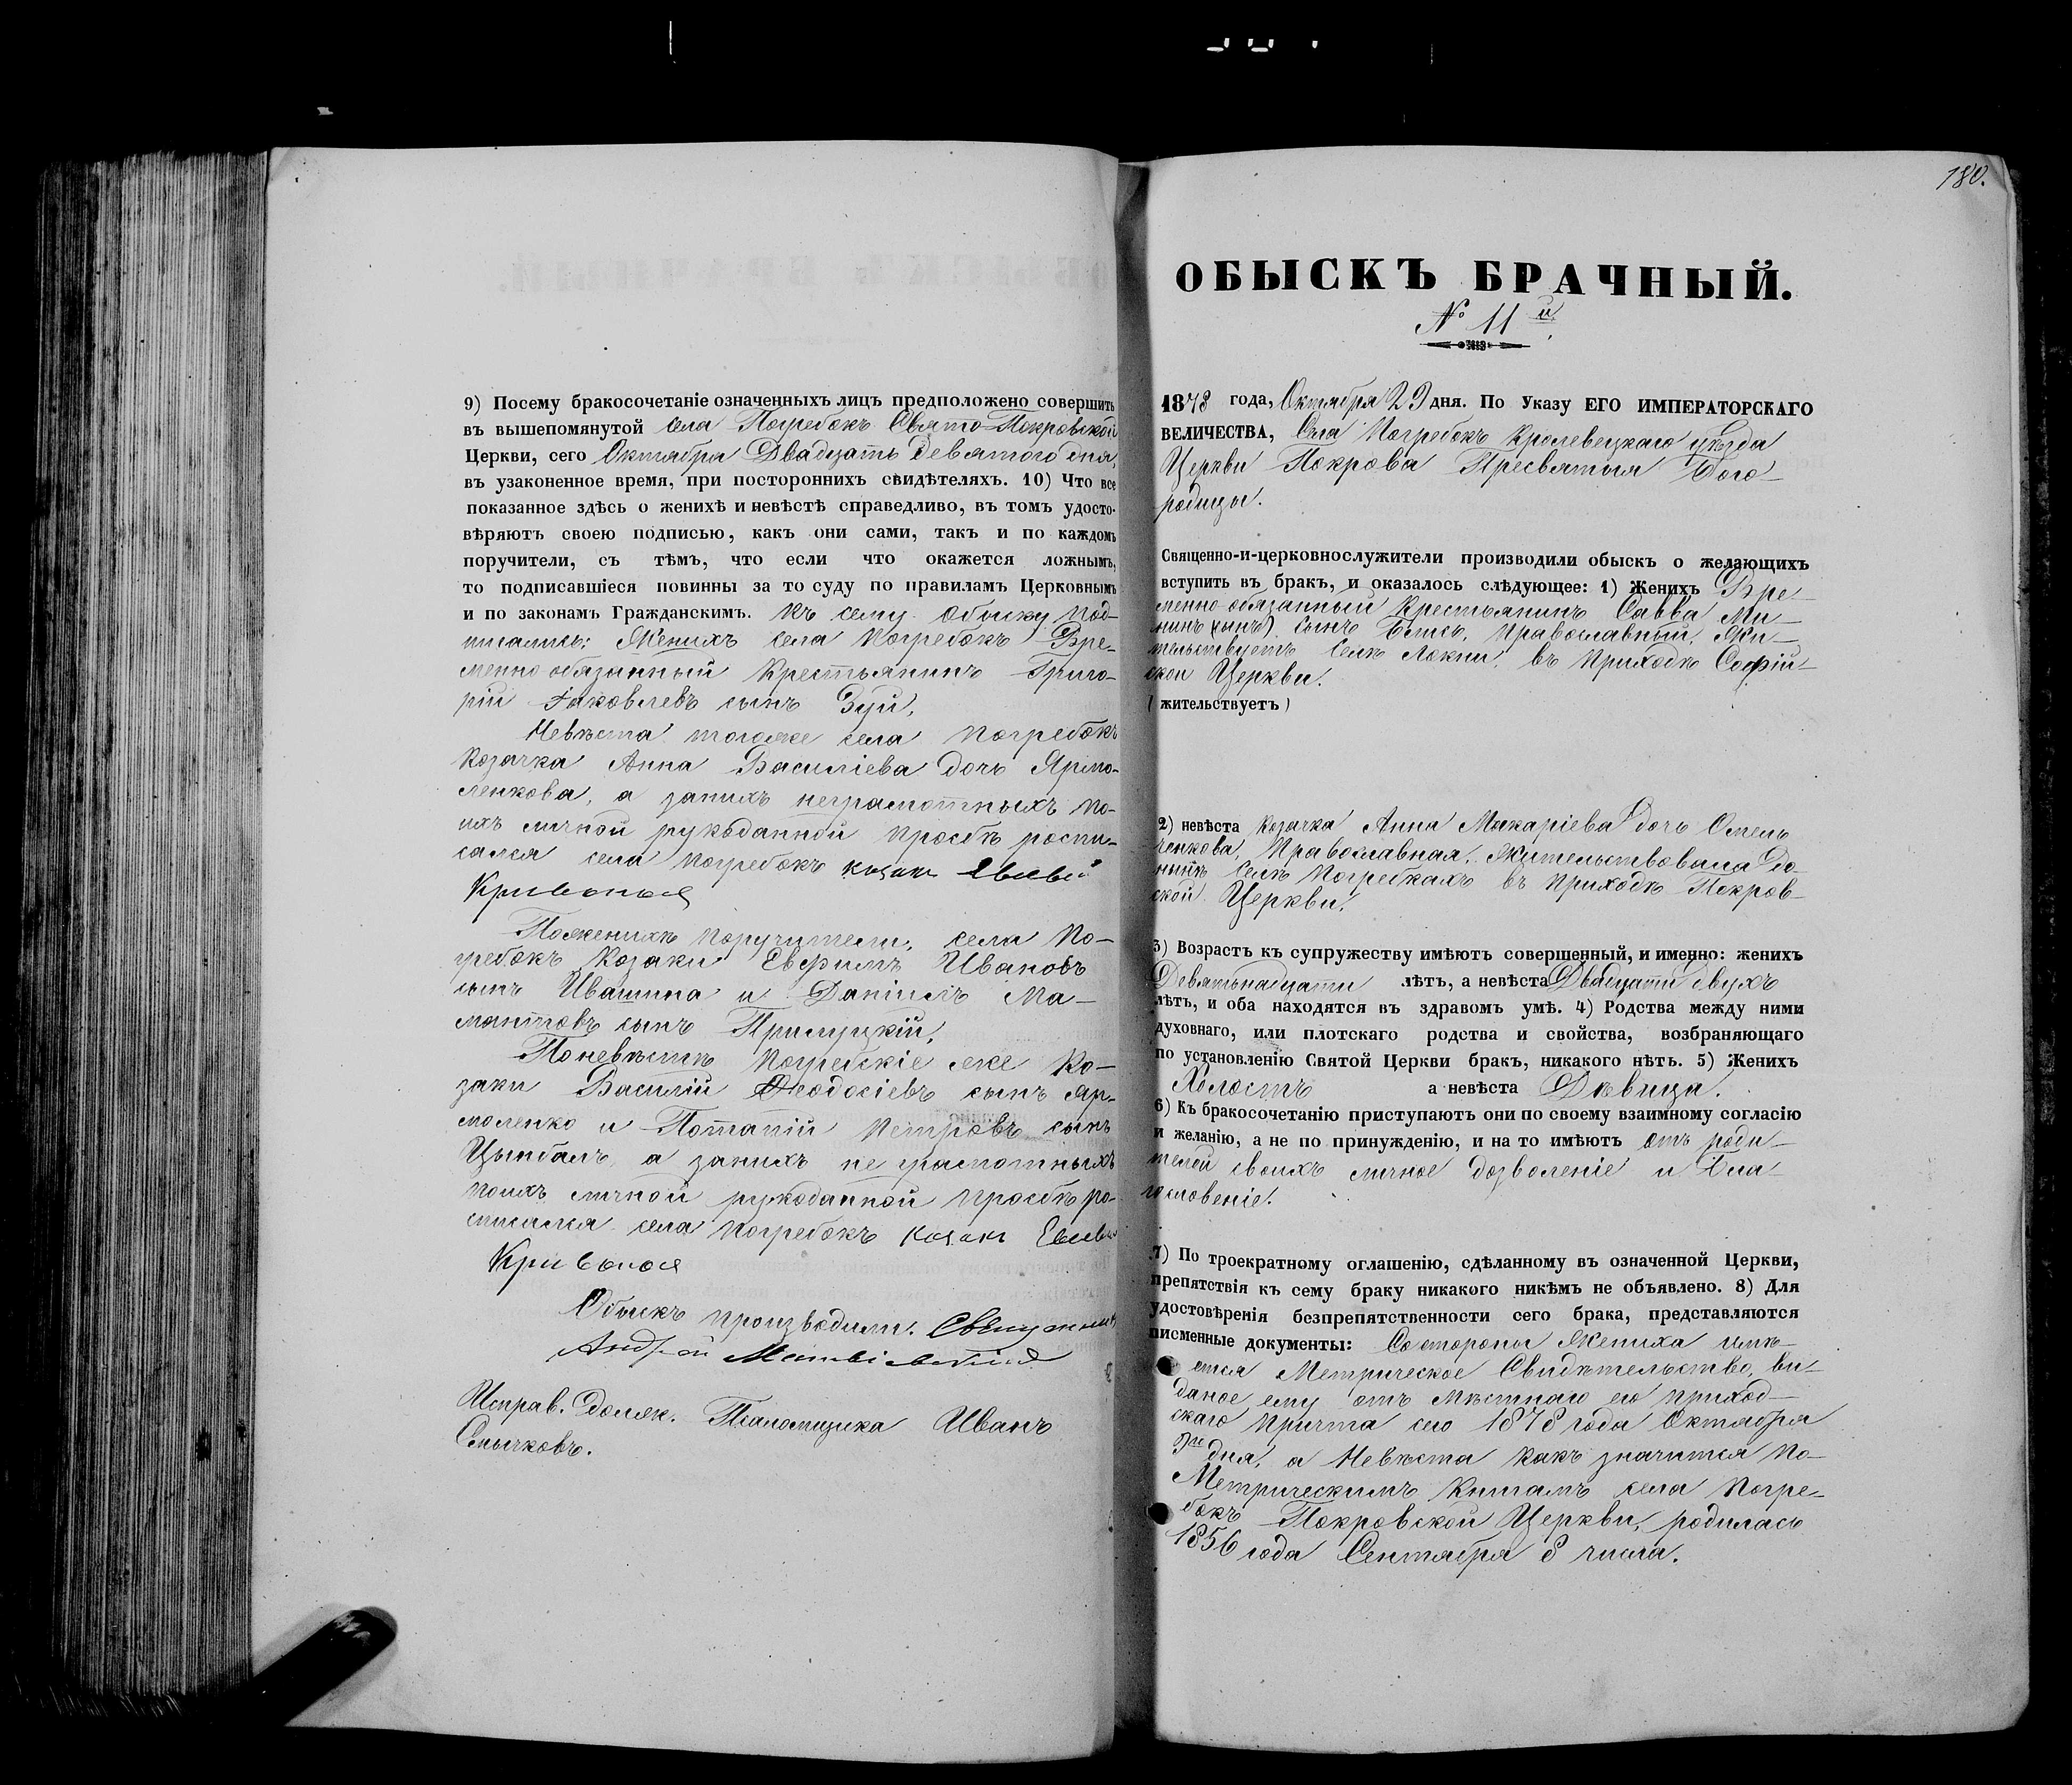 9) Посему бракосочетаніе означенныхъ лицъ предположено совершить
въ вышепомянутой села Погребокъ Свято-Покровской
Церкви, сего Октября Двадцать девятого дня,
въ узаконенное время, при постороннихъ свидѣтеляхъ. 10) Что все
показанное здѣсь о женихѣ и невѣстѣ справедливо, въ томъ удосто-
вѣряютъ своею подписью, какъ они сами, такъ и по каждомъ
поручители, съ тѣмъ, что если что окажется ложнымъ,
то подписавшіеся повинны за то суду по правиламъ Церковнымъ
и по законамъ Гражданскимъ. Къ сему обыску под-
писались: Женихъ села Погребокъ Вре-
менно обязанный Крестьянинъ Григо-
рій Іаковлевъ сынъ Зуй,
Невѣста тогоже села Погребокъ
Козачка Анна Василіева дочь Ярмо-
ленкова, а занихъ неграмотныхъ по-
ихъ личной рукоданной просьбѣ роспи-
сался села Погребокъ козакъ
Поженихѣ поручители, села По-
гребокъ Козаки Евфимъ Ивановъ
сынъ Ивашина и Даніилъ Ма-
мантовъ сынъ Прилуцкій,
Поневѣстѣ Погребскіе же Ко-
заки Василій Феодосіевъ сынъ Яр-
моленко и Потапій Петровъ сынъ
Цымбалъ, а занихъ не грамотныхъ
поихъ личной рукоданной просьбѣ ро-
списался села Погребокъ козакъ
Обыскъ производили: Священникъ
Андрей
Исправ. долж. Псаломщика Иванъ
Смычковъ.
180.
ОБЫСКЪ БРАЧНЫЙ.
№ 11й
1878 года, Октября 29 дня. По Указу ЕГО ИМПЕРАТОРСКАГО
ВЕЛИЧЕСТВА, Села Погребокъ Кролевецкаго уѣзда
Церкви Покрова Пресвятыя Бого-
родицы.
Священно-и-церковнослужители производили обыскъ о желающихъ
вступить въ бракъ, и оказалось слѣдующее: 1) Женихъ Вре-
менно-обязанный Крестьянинъ Савва Ми-
нинъ (сынъ) сынъ Православный, Жи-
тельствуетъ Селѣ Локни, въ Приходѣ Софій-
ской Церкви.
(жительствуетъ)
2) невѣста Козачка Анна Макаріева дочь Омель
ченкова, Православная, Жительствовала до-
нынѣ Селѣ Погребкахъ въ приходѣ Покров-
ской Церкви.
3) Возрастъ къ супружеству имѣютъ совершенный, и именно: женихъ
Девятьнадцати лѣтъ, а невѣста Двадцати двухъ
лѣтъ, и оба находятся въ здравомъ умѣ. 4) Родства между ними
духовнаго, или плотскаго родства и свойства, возбраняющаго
по установленію Святой Церкви бракъ, никакого нѣтъ. 5) Женихъ
Холостъ а невѣста Дѣвица.
6) Къ бракосочетанію приступаютъ они по своему взаимному согласію
и желанію, а не по принужденію, и на то имѣютъ отъ роди-
телей своихъ личное дозволеніе и Бла-
гословеніе.
7) По троекратному оглашенію, сдѣланному въ означенной Церкви,
препятствія къ сему браку никакого никѣмъ не объявлено. 8) Для
удостовѣренія безпрепятственности сего брака, представляются
писменные документы: Состороны Жениха имѣ-
ется Метрическое Свидѣтельство, ви-
даное ему отъ мѣстнаго его приход-
скаго Причта сего 1878 года Октября
дня, а Невѣста какъ значится по-
Метрическимъ Книгамъ села Погре-
бокъ Покровской Церкви, родилась
1856 года Сентября 8 числа.